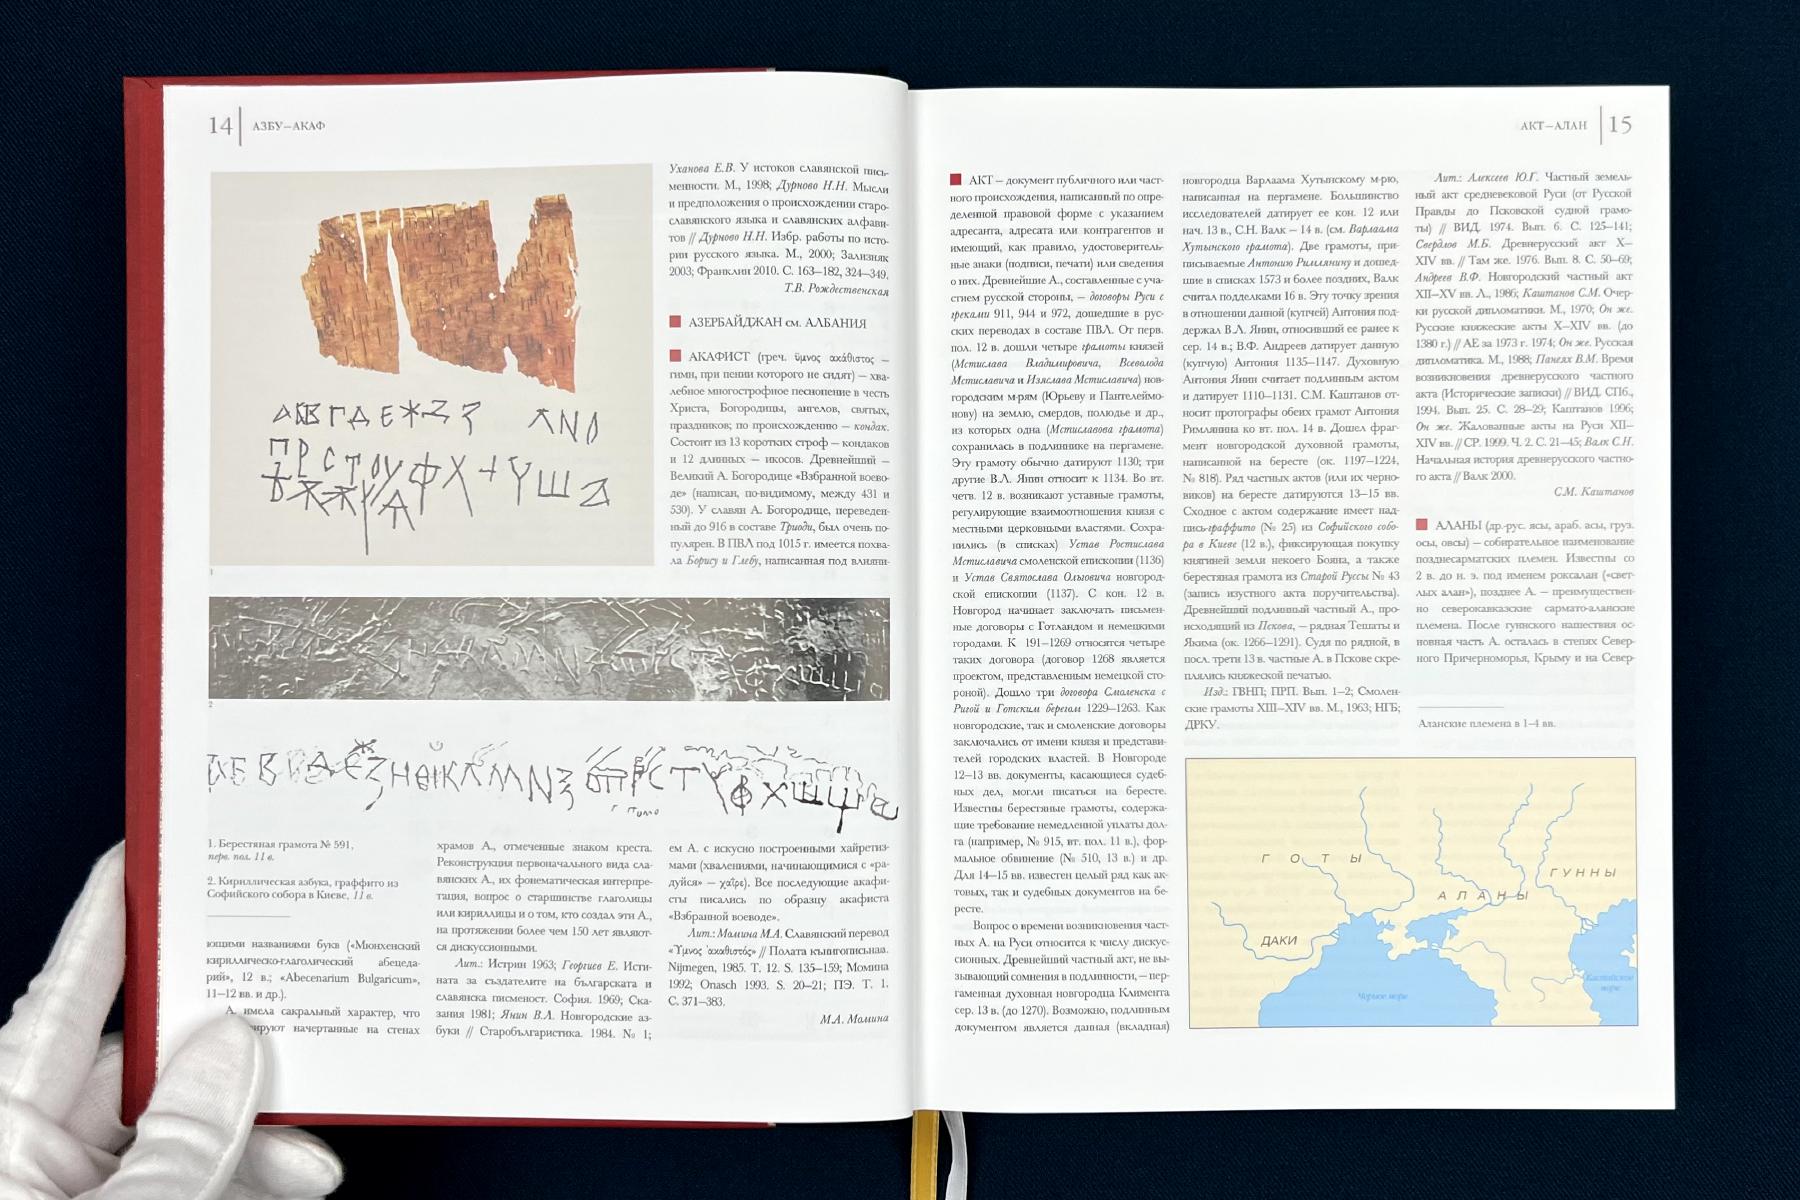 14 | АЗБУ—АКАФ
1. Берестяная грамота № 591,
перв. пол. 11 в.
2. Кириллическая азбука, граффито из
Софийского собора в Киеве, 11 в.
ющими названиями букв («Мюнхенский
кириллическо-глаголический абецеда-
рий», 12 в.; «Abecenarium Bulgaricum»,
11–12 вв. и др.).
А. имела сакральный характер, что
начертанные на стенах
храмов А., отмеченные знаком креста.
Реконструкция первоначального вида сла-
вянских А., их фонематическая интерпре-
тация, вопрос о старшинстве глаголицы
или кириллицы и о том, кто создал эти А.,
на протяжении более чем 150 лет являют-
ся дискуссионными.
Лит.: Истрин 1963; Георгиев Е. Исти-
ната за създателите на българската и
славянска писменост. София. 1969; Ска-
зания 1981; Янин В.Л. Новгородские аз-
буки // Старобългаристика. 1984. № 1;
Уханова Е.В. У истоков славянской пись-
менности. М., 1998; Дурново Н.Н. Мысли
и предположения о происхождении старо-
славянского языка и славянских алфави-
тов // Дурново Н.Н. Избр. работы по исто-
рии русского языка. М., 2000; Зализняк
2003; Франклин 2010. С. 163–182, 324–349.
Т.В. Рождественская
АЗЕРБАЙДЖАН см. АЛБАНИЯ
АКАФИСТ (греч. ὕμνος ἀκάθιστος —
гимн, при пении которого не сидят) — хва-
лебное многострофное песнопение в честь
Христа, Богородицы, ангелов, святых,
праздников; по происхождению — кондак.
Состоит из 13 коротких строф — кондаков
и 12 длинных — икосов. Древнейший —
Великий А. Богородице «Взбранной воево-
де» (написан, по-видимому, между 431 и
530). У славян А. Богородице, переведен-
ный до 916 в составе Триоди, был очень по-
пулярен. В ПВЛ под 1015 г. имеется похва-
ла Борису и Глебу, написанная под влияни-
ем А. с искусно построенными хайретиз-
мами (хвалениями, начинающимися с «ра-
дуйся» — χαῖρε). Все последующие акафи-
сты писались по образцу акафиста
«Взбранной воеводе».
Лит.: Момина М.А. Славянский перевод
«Ὕμνος ἀκαθιστός» // Полата кънигописьная.
Nijmegen, 1985. Т. 12. S. 135–159; Момина
1992; Onasch 1993. S. 20–21; ПЭ. Т. 1.
С. 371–383.
М.А. Момина
АКТ—АЛАН | 15
АКТ — документ публичного или част-
ного происхождения, написанный по опре-
деленной правовой форме с указанием
адресанта, адресата или контрагентов и
имеющий, как правило, удостоверитель-
ные знаки (подписи, печати) или сведения
о них. Древнейшие А., составленные с уча-
стием русской стороны, — договоры Руси с
греками 911, 944 и 972, дошедшие в рус-
ских переводах в составе ПВЛ. От перв.
пол. 12 в. дошли четыре грамоты князей
(Мстислава Владимировича, Всеволода
Мстиславича и Изяслава Мстиславича) нов-
городским м-рям (Юрьеву и Пантелеймо-
нову) на землю, смердов, полюдье и др.,
из которых одна (Мстиславова грамота)
сохранилась в подлиннике на пергамене.
Эту грамоту обычно датируют 1130; три
другие В.Л. Янин относит к 1134. Во вт.
четв. 12 в. возникают уставные грамоты,
регулирующие взаимоотношения князя с
местными церковными властями. Сохра-
нились (в списках) Устав Ростислава
Мстиславича смоленской епископии (1136)
и Устав Святослава Ольговича новгород-
ской епископии (1137). С кон. 12 в.
Новгород начинает заключать письмен-
ные договоры с Готландом и немецкими
городами. К 191–1269 относятся четыре
таких договора (договор 1268 является
проектом, представленным немецкой сто-
роной). Дошло три договора Смоленска с
Ригой и Готским берегом 1229–1263. Как
новгородские, так и смоленские договоры
заключались от имени князя и представи-
телей городских властей. В Новгороде
12–13 вв. документы, касающиеся судеб-
ных дел, могли писаться на бересте.
Известны берестяные грамоты, содержа-
щие требование немедленной уплаты дол-
га (например, № 915, вт. пол. 11 в.), фор-
мальное обвинение (№ 510, 13 в.) и др.
Для 14–15 вв. известен целый ряд как ак-
товых, так и судебных документов на бе-
ресте.
Вопрос о времени возникновения част-
ных А. на Руси относится к числу дискус-
сионных. Древнейший частный акт, не вы-
зывающий сомнения в подлинности, — пер-
гаменная духовная новгородца Климента
сер. 13 в. (до 1270). Возможно, подлинным
документом является данная (вкладная)
новгородца Варлаама Хутынскому м-рю,
написанная на пергамене. Большинство
исследователей датирует ее кон. 12 или
нач. 13 в., С.Н. Валк — 14 в. (см. Варлаама
Хутынского грамота). Две грамоты, при-
писываемые Антонию Римлянину и дошед-
шие в списках 1573 и более поздних, Валк
считал подделками 16 в. Эту точку зрения
в отношении данной (купчей) Антония под-
держал В.Л. Янин, относивший ее ранее к
сер. 14 в.; В.Ф. Андреев датирует данную
(купчую) Антония 1135–1147. Духовную
Антония Янин считает подлинным актом
и датирует 1110–1131. С.М. Каштанов от-
носит протографы обеих грамот Антония
Римлянина ко вт. пол. 14 в. Дошел фраг-
мент новгородской духовной грамоты,
написанной на бересте (ок. 1197–1224,
№ 818). Ряд частных актов (или их черно-
виков) на бересте датируются 13–15 вв.
Сходное с актом содержание имеет над-
пись-граффито (№ 25) из Софийского собо-
ра в Киеве (12 в.), фиксирующая покупку
княгиней земли некоего Бояна, а также
берестяная грамота из Старой Руссы № 43
(запись изустного акта поручительства).
Древнейший подлинный частный А., про-
исходящий из Пскова, — рядная Тешаты и
Якима (ок. 1266–1291). Судя по рядной, в
посл. трети 13 в. частные А. в Пскове скре-
плялись княжеской печатью.
Изд.: ГВНП; ПРП. Вып. 1–2; Смолен-
ские грамоты XIII–XIV вв. М., 1963; НГБ;
ДРКУ.
Лит.: Алексеев Ю.Г. Частный земель-
ный акт средневековой Руси (от Русской
Правды до Псковской судной грамо-
ты) // ВИД. 1974. Вып. 6. С. 125–141;
Свердлов М.Б. Древнерусский акт X–
XIV вв. // Там же. 1976. Вып. 8. С. 50–69;
Андреев В.Ф. Новгородский частный акт
XII–XV вв. Л., 1986; Каштанов С.М. Очер-
ки русской дипломатики. М., 1970; Он же.
Русские княжеские акты X–XIV вв. (до
1380 г.) // АЕ за 1973 г. 1974; Он же. Русская
дипломатика. М., 1988; Панеях В.М. Время
возникновения древнерусского частного
акта (Исторические записки) // ВИД. СПб.,
1994. Вып. 25. С. 28–29; Каштанов 1996;
Он же. Жалованные акты на Руси XII–
XIV вв. // СР. 1999. Ч. 2. С. 21–45; Валк С.Н.
Начальная история древнерусского частно-
го акта // Валк 2000.
С.М. Каштанов
АЛАНЫ (др.-рус. ясы, араб. асы, груз.
осы, овсы) — собирательное наименование
позднесарматских племен. Известны со
2 в. до н. э. под именем роксалан («свет-
лых алан»), позднее А. — преимуществен-
но северокавказские сармато-аланские
племена. После гуннского нашествия ос-
новная часть А. осталась в степях Север-
ного Причерноморья, Крыму и на Север-
Аланские племена в 1–4 вв.
ГОТЫ
АЛАНЫ
ГУННЫ
ДАКИ
Черное море
Каспийское
море